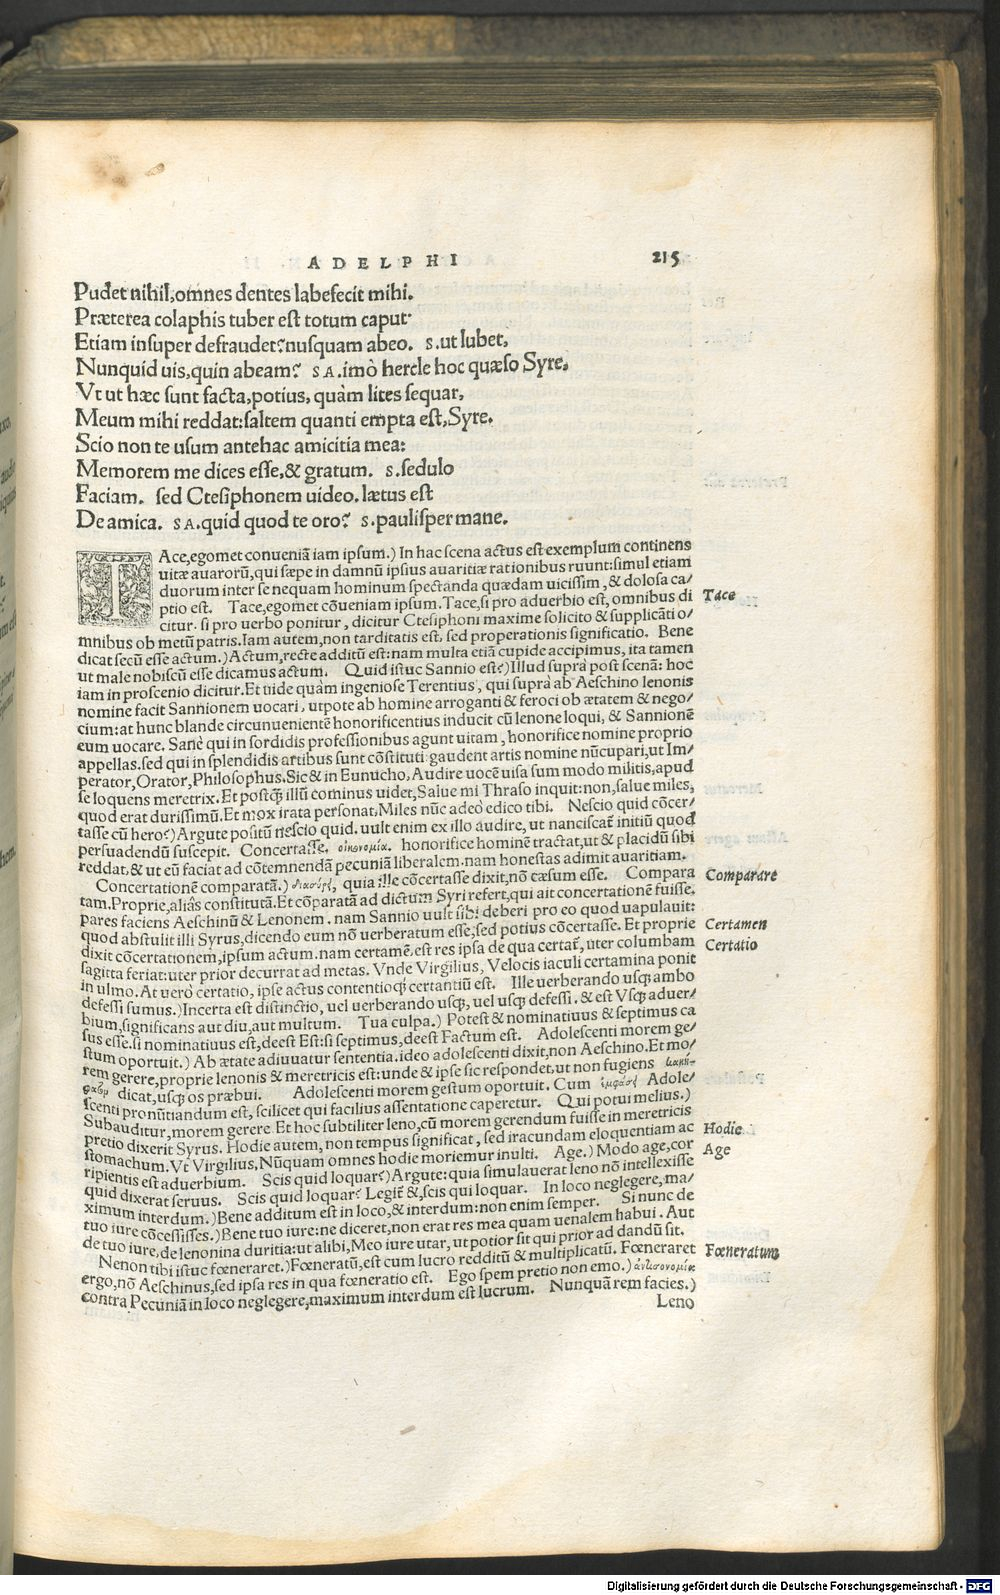 ADELPHI 215
Pudet nihil, omnes dentes labefecit mihi.
Præterea colaphis tuber est totum caput·
Etiam insuper defraudet? nusquam abeo. S. ut lubet,
Nunquid uis, quin abeam? SA. imò hercle hoc quæso Syre,
Vt ut hæc sunt facta, potius, quàm lites sequar,
Meum mihi reddat: saltem quanti empta est, Syre.
Scio non te usum antehac amicitia mea:
Memorem me dices esse, & gratum. S. sedulo
Faciam. sed Ctesiphonem uideo. lætus est
De amica. SA. quid quod te oro? S. paulisper mane.
TAce, egomet conueniā iam ipsum.) In hac scena actus est exemplum continens
uitæ auarorū, qui sæpe in damnū ipsius auaritiæ rationibus ruunt: simul etiam
duorum inter se nequam hominum spectanda quædam uicissim, & dolosa ca/
ptio est. Tace, egomet cōueniam ipsum. Tace, si pro aduerbio est, omnibus di
Tace
citur. si pro uerbo ponitur, dicitur Ctesiphoni maxime solicito & supplicāti o/
mnibus ob metū patris. Iam autem, non tarditatis est, sed properationis significatio. Bene
dicat secū esse actum.) Actum, recte additū est: nam multa etiā cupide accipimus, ita tamen
ut male nobiscū esse dicamus actum. Quid istuc Sannio est?) Illud suprà post scenā: hoc
iam in proscenio dicitur. Et uide quàm ingeniose Terentius, qui suprà ab Aeschino lenonis
nomine facit Sannionem uocari, utpote ab homine arroganti & feroci ob ætatem & nego/
cium: at hunc blande circunuenientē honorificentius inducit cū lenone loqui, & Sannionē
eum uocare. Sanè qui in sordidis professionibus agunt uitam, honorifice nomine proprio
appellas. sed qui in splendidis artibus sunt cōstituti gaudent artis nomine nūcupari, ut Im/
perator, Orator, Philosophus. Sic & in Eunucho, Audire uocē uisa sum modo militis, apud
se loquens meretrix. Et postq̃ illū cominus uidet, Salue mi Thraso inquit: non, salue miles,
quod erat durissimū. Et mox irata personat, Miles nūc adeò edico tibi. Nescio quid cōcer/
tasse cū hero?) Argute positū nescio quid. uult enim ex illo audire, ut nanciscat᷑ initiū quod
persuadendū suscepit. Concertasse. οἰκονομία. honorifice hominē tractat, ut & placidū sibi
reddat, & ut eū faciat ad cōtemnendā pecuniā liberalem. nam honestas adimit auaritiam.
Concertationē comparatā.) διασύρει, quia ille cōcertasse dixit, nō cæsum esse. Compara
Comparare
tam. Proprie, aliâs constitutā. Et cōparatā ad dictum Syri refert, qui ait concertationē fuisse.
pares faciens Aeschinū & Lenonem. nam Sannio uult sibi deberi pro eo quod uapulauit:
quod abstulit illi Syrus, dicendo eum nō uerberatum esse, sed potius cōcertasse. Et proprie
Certamen
dixit cōcertationem, ipsum actum. nam certamē. est res ipsa de qua certat᷑, uter columbam
Certatio
sagitta feriat: uter prior decurrat ad metas. Vnde Virgilius, Velocis iaculi certamina ponit
in ulmo. At uerò certatio, ipse actus contentioq́; certantiū est. Ille uerberando usq; ambo
defessi sumus.) Incerta est distinctio, uel uerberando usq;, uel usq; defessi. & est Vsq; aduer/
bium, significans aut diu, aut multum. Tua culpa.) Potest & nominatiuus & septimus ca
sus esse. si nominatiuus est, deest Est: si septimus, deest Factum est. Adolescenti morem ge/
stum oportuit.) Ab ætate adiuuatur sententia. ideo adolescenti dixit, non Aeschino. Et mo/
rem gerere, proprie lenonis & meretricis est: unde & ipse sic respondet. ut non fugiens
dicat, usq; os præbui. Adolescenti morem gestum oportuit. Cum ἐμφάσει Adole/
scenti pronūtiandum est, scilicet qui facilius assentatione caperetur. Qui potui melius.)
Subauditur, morem gerere. Et hoc subtiliter leno, cū morem gerendum fuisse in meretricis
pretio dixerit Syrus. Hodie autem, non tempus significat, sed iracundam eloquentiam ac
Hodie
stomachum. Vt Virgilius, Nūquam omnes hodie moriemur inulti. Age.) Modo age, cor
Age
ripientis est aduerbium. Scis quid loquar?) Argute: quia simulauerat leno nō intellexisse
quid dixerat seruus. Scis quid loquar? Legit᷑ &, scis qui loquar. In loco neglegere, ma/
ximum interdum.) Bene additum est in loco, & interdum: non enim semper. Si nunc de
tuo iure cōcessisses.) Bene tuo iure: ne diceret, non erat res mea quam uenalem habui. Aut
de tuo iure, de lenonina duritia: ut alibi, Meo iure utar, ut potior sit qui prior ad dandū sit.
Nenon tibi istuc fœneraret.) Fœneratū, est cum lucro redditū & multiplicatū. Fœneraret
Fœneratum
ergo, nō Aeschinus, sed ipsa res in qua fœneratio est. Ego spem pretio non emo.)
contra Pecuniā in loco neglegere, maximum interdum est lucrum. Nunquā rem facies.)
Leno
Digitalisierung gefördert durch die Deutsche Forschungsgemeinschaft - DFG